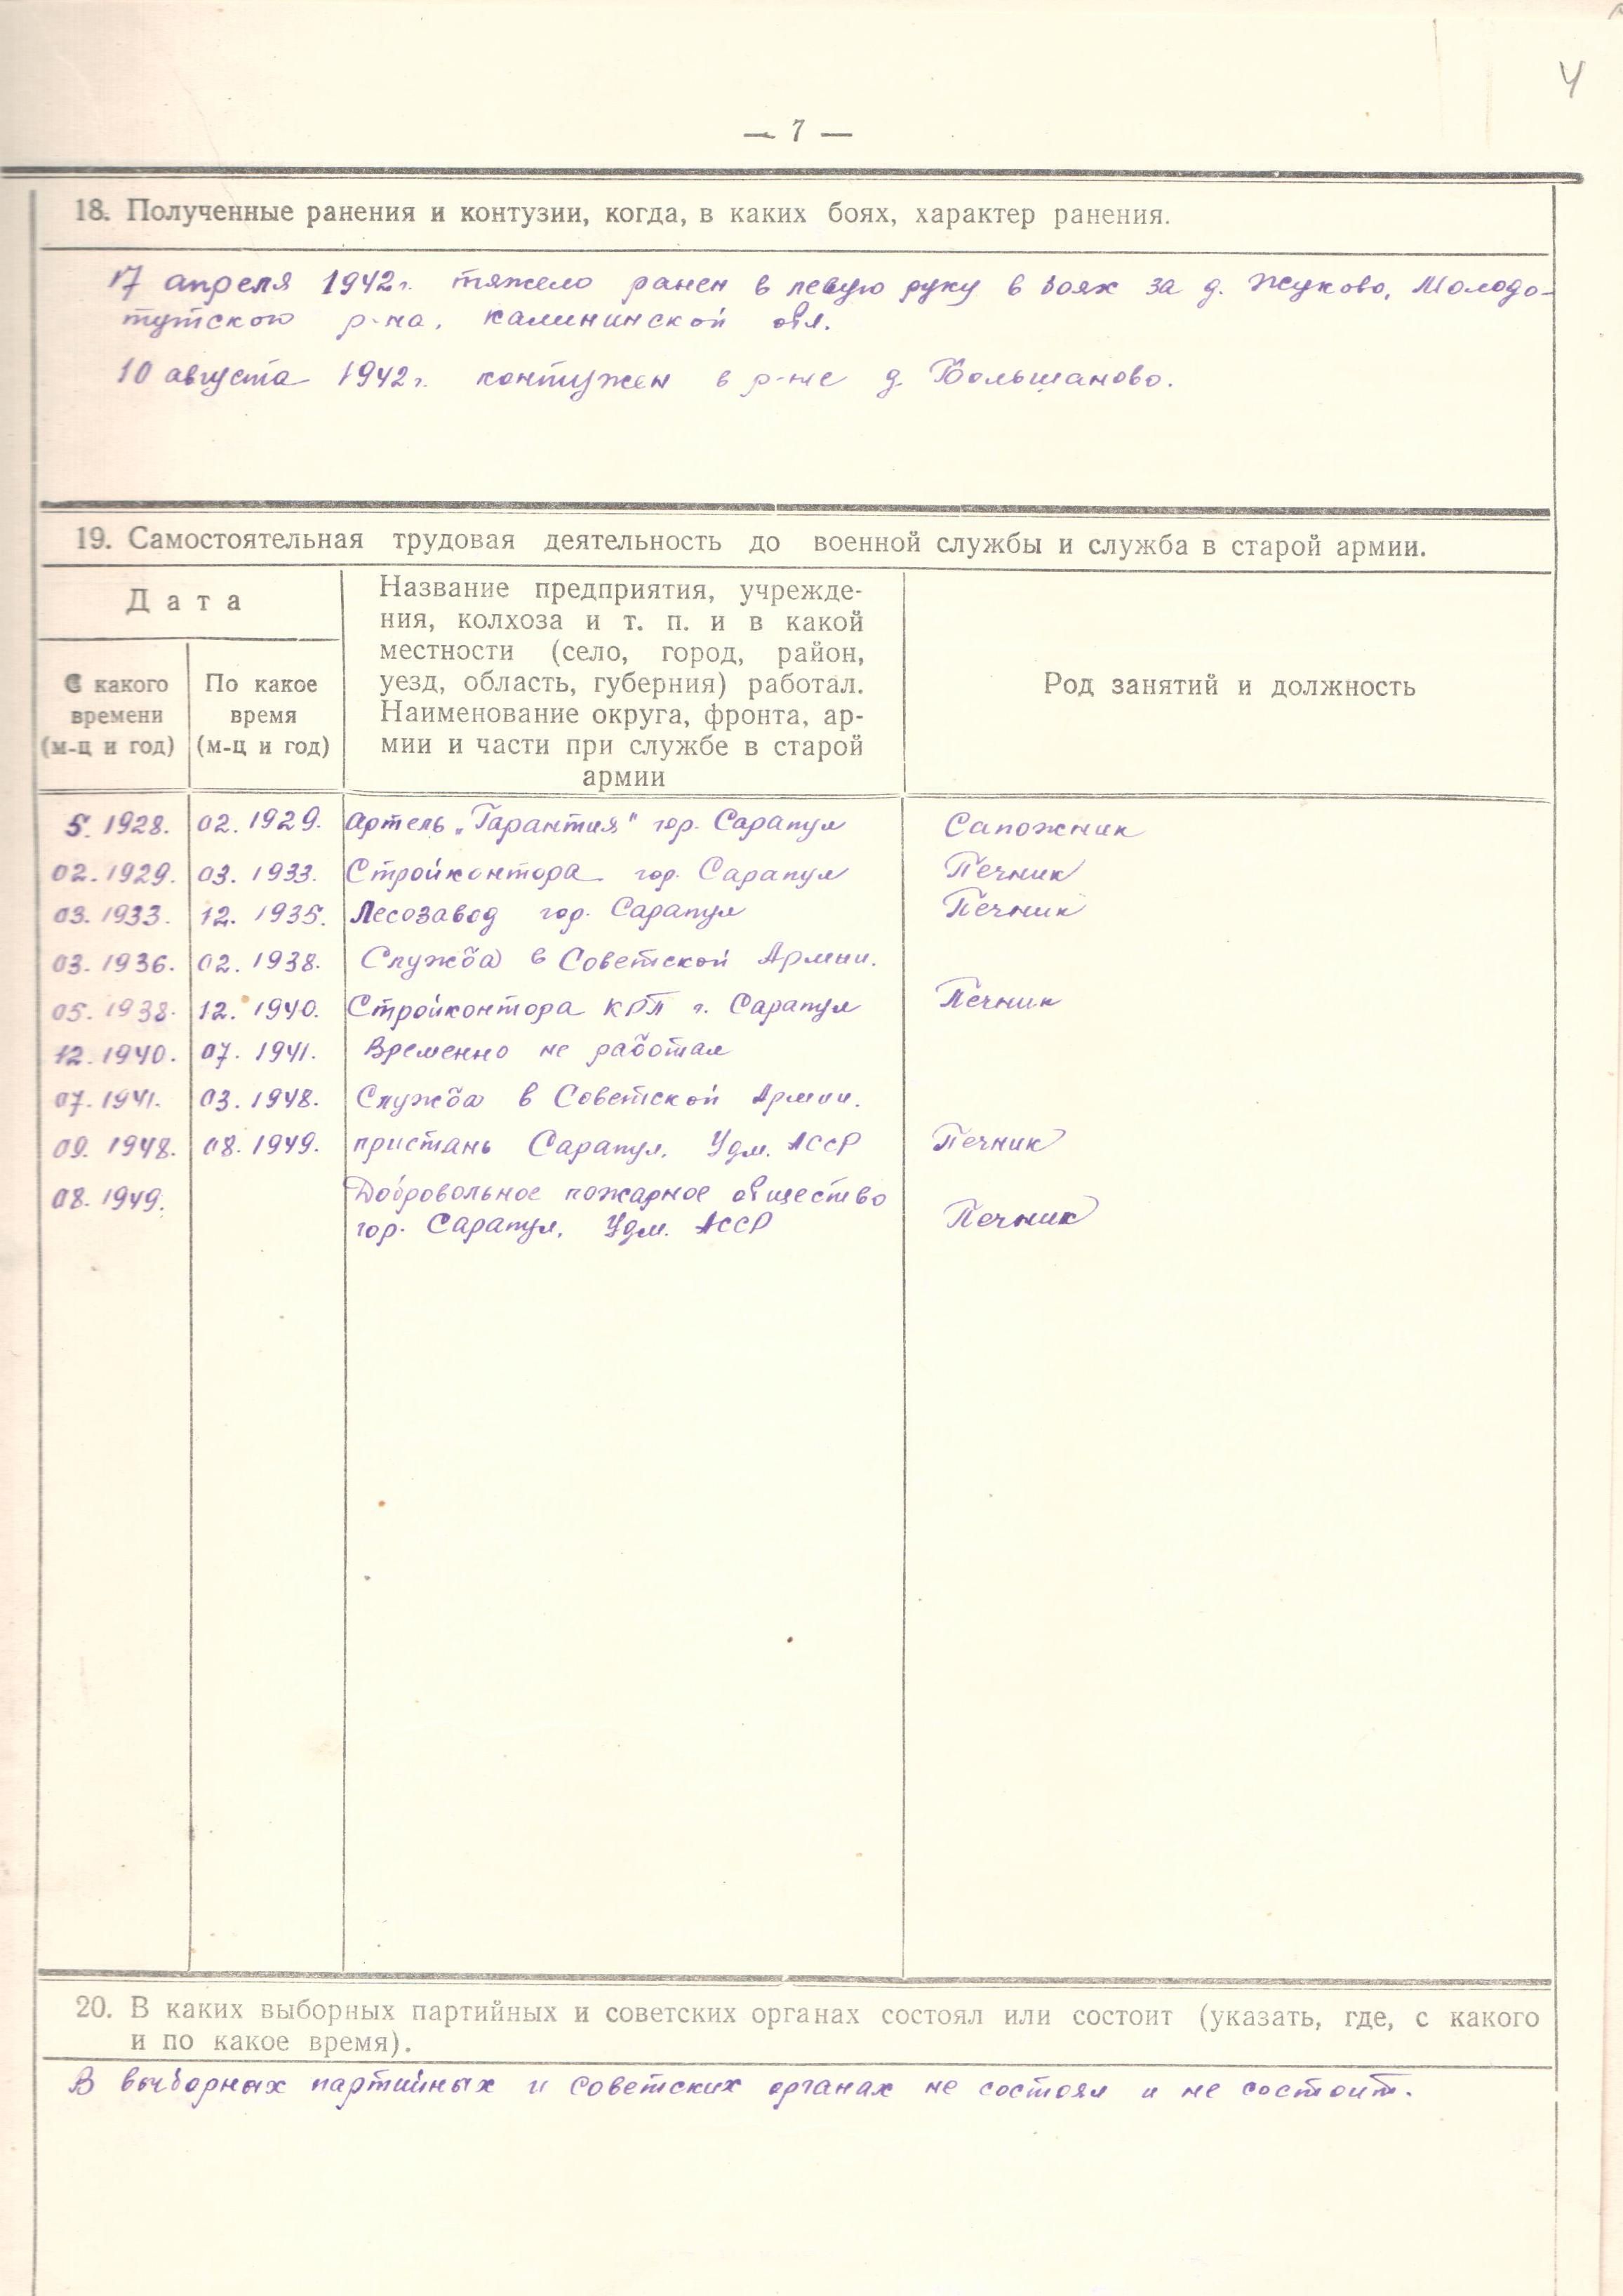 4
— 7 —
18. Полученные ранения и контузии, когда, в каких боях, характер ранения.
17 апреля 1942г. тяжело ранен в левую руку в боях за д. Жуково, Молодо-
тутского р-на, калининской обл.
10 августа 1942г. контужен в р-не д. Большаново.
19. Самостоятельная трудовая деятельность до военной службы и служба в старой армии.
Дата
С какого времени (м-ц и год)
По какое время (м-ц и год)
Название предприятия, учрежде-
ния, колхоза и т. п. и в какой
местности (село, город, район,
уезд, область, губерния) работал.
Наименование округа, фронта, ар-
мии и части при службе в старой
армии
Род занятий и должность
5. 1928. 02. 1929. Артель „Гарантия" гор. Сарапул Сапожник
02. 1929. 03. 1933. Стройконтора гор. Сарапул Печник
03. 1933. 12. 1935. Лесозавод гор. Сарапул Печник
03. 1936. 02. 1938. Служба в Советской Армии.
05. 1938. 12. 1940. Стройконтора КРП г. Сарапул Печник
12. 1940. 07. 1941. Временно не работал
07. 1941. 03. 1948. Служба в Советской Армии.
09. 1948. 08. 1949. пристань Сарапул. Удм. АССР Печник
08. 1949. Добровольное пожарное общество
гор. Сарапул, Удм. АССР Печник
20. В каких выборных партийных и советских органах состоял или состоит (указать, где, с какого
и по какое время).
В выборных партийных и советских органах не состоял и не состоит.